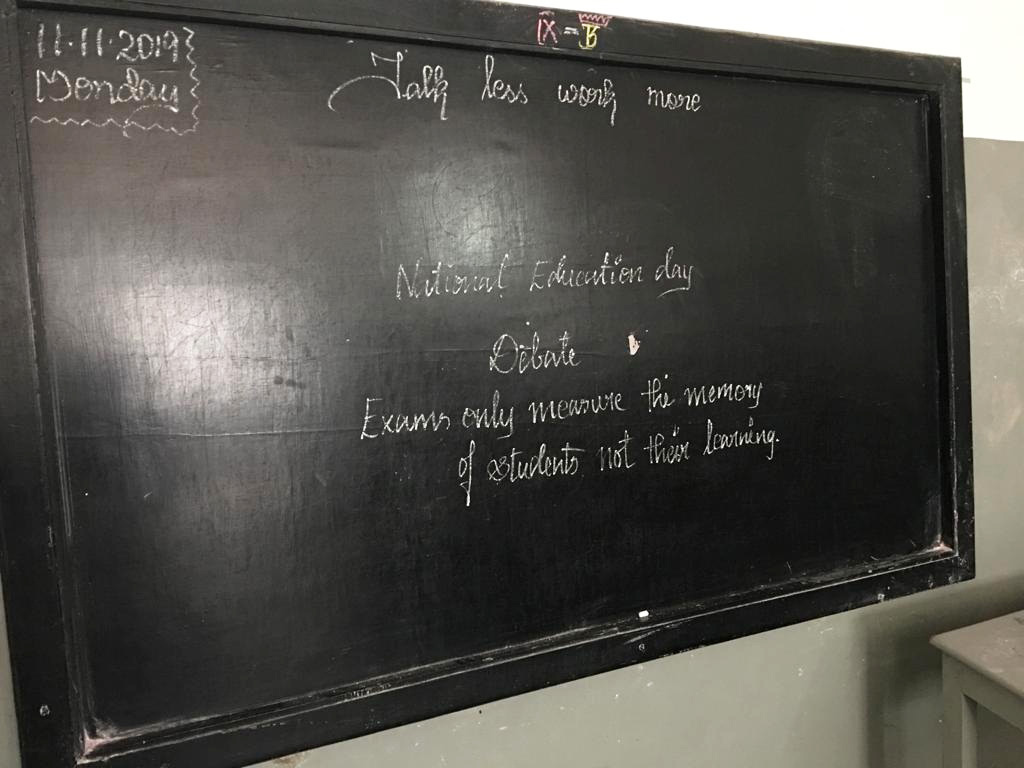 IX - B
11.11.2019
Monday
Talk less work more
National Education day
Debate
Exams only measure the memory
of students not their learning.